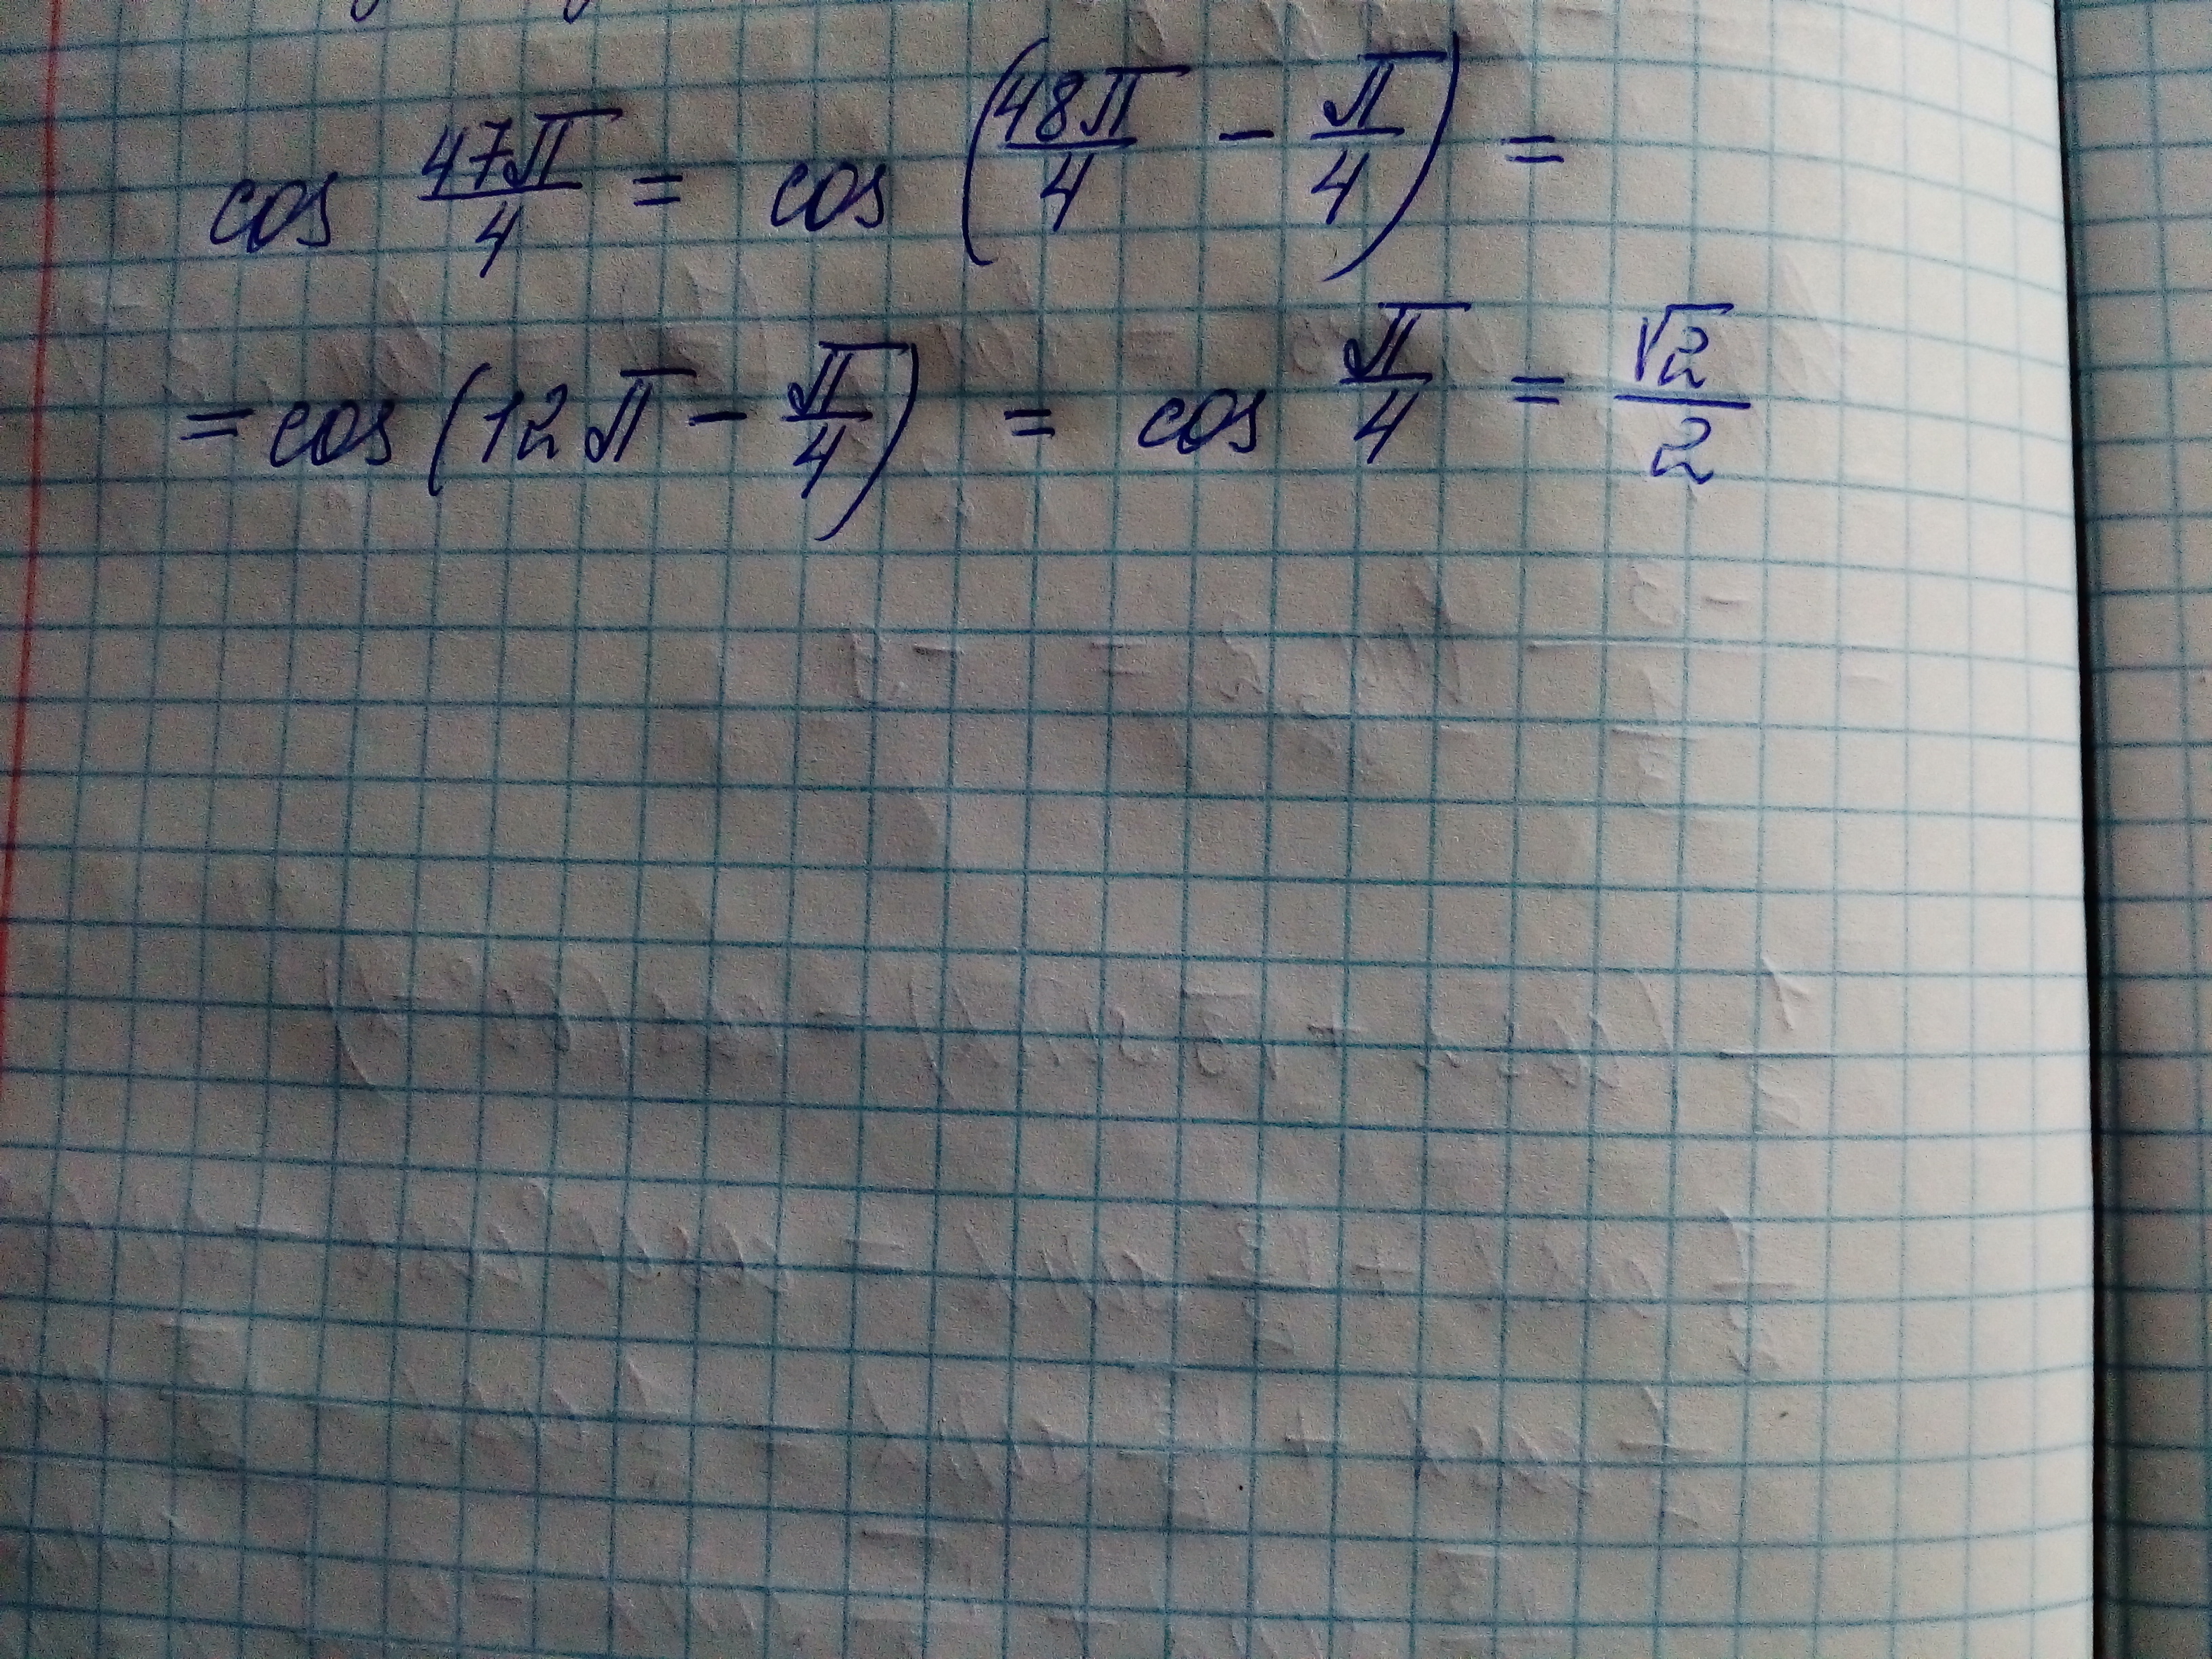 cos 47π/4 = cos (48π/4 - π/4) =
= cos (12π - π/4) = cos π/4 = √2/2